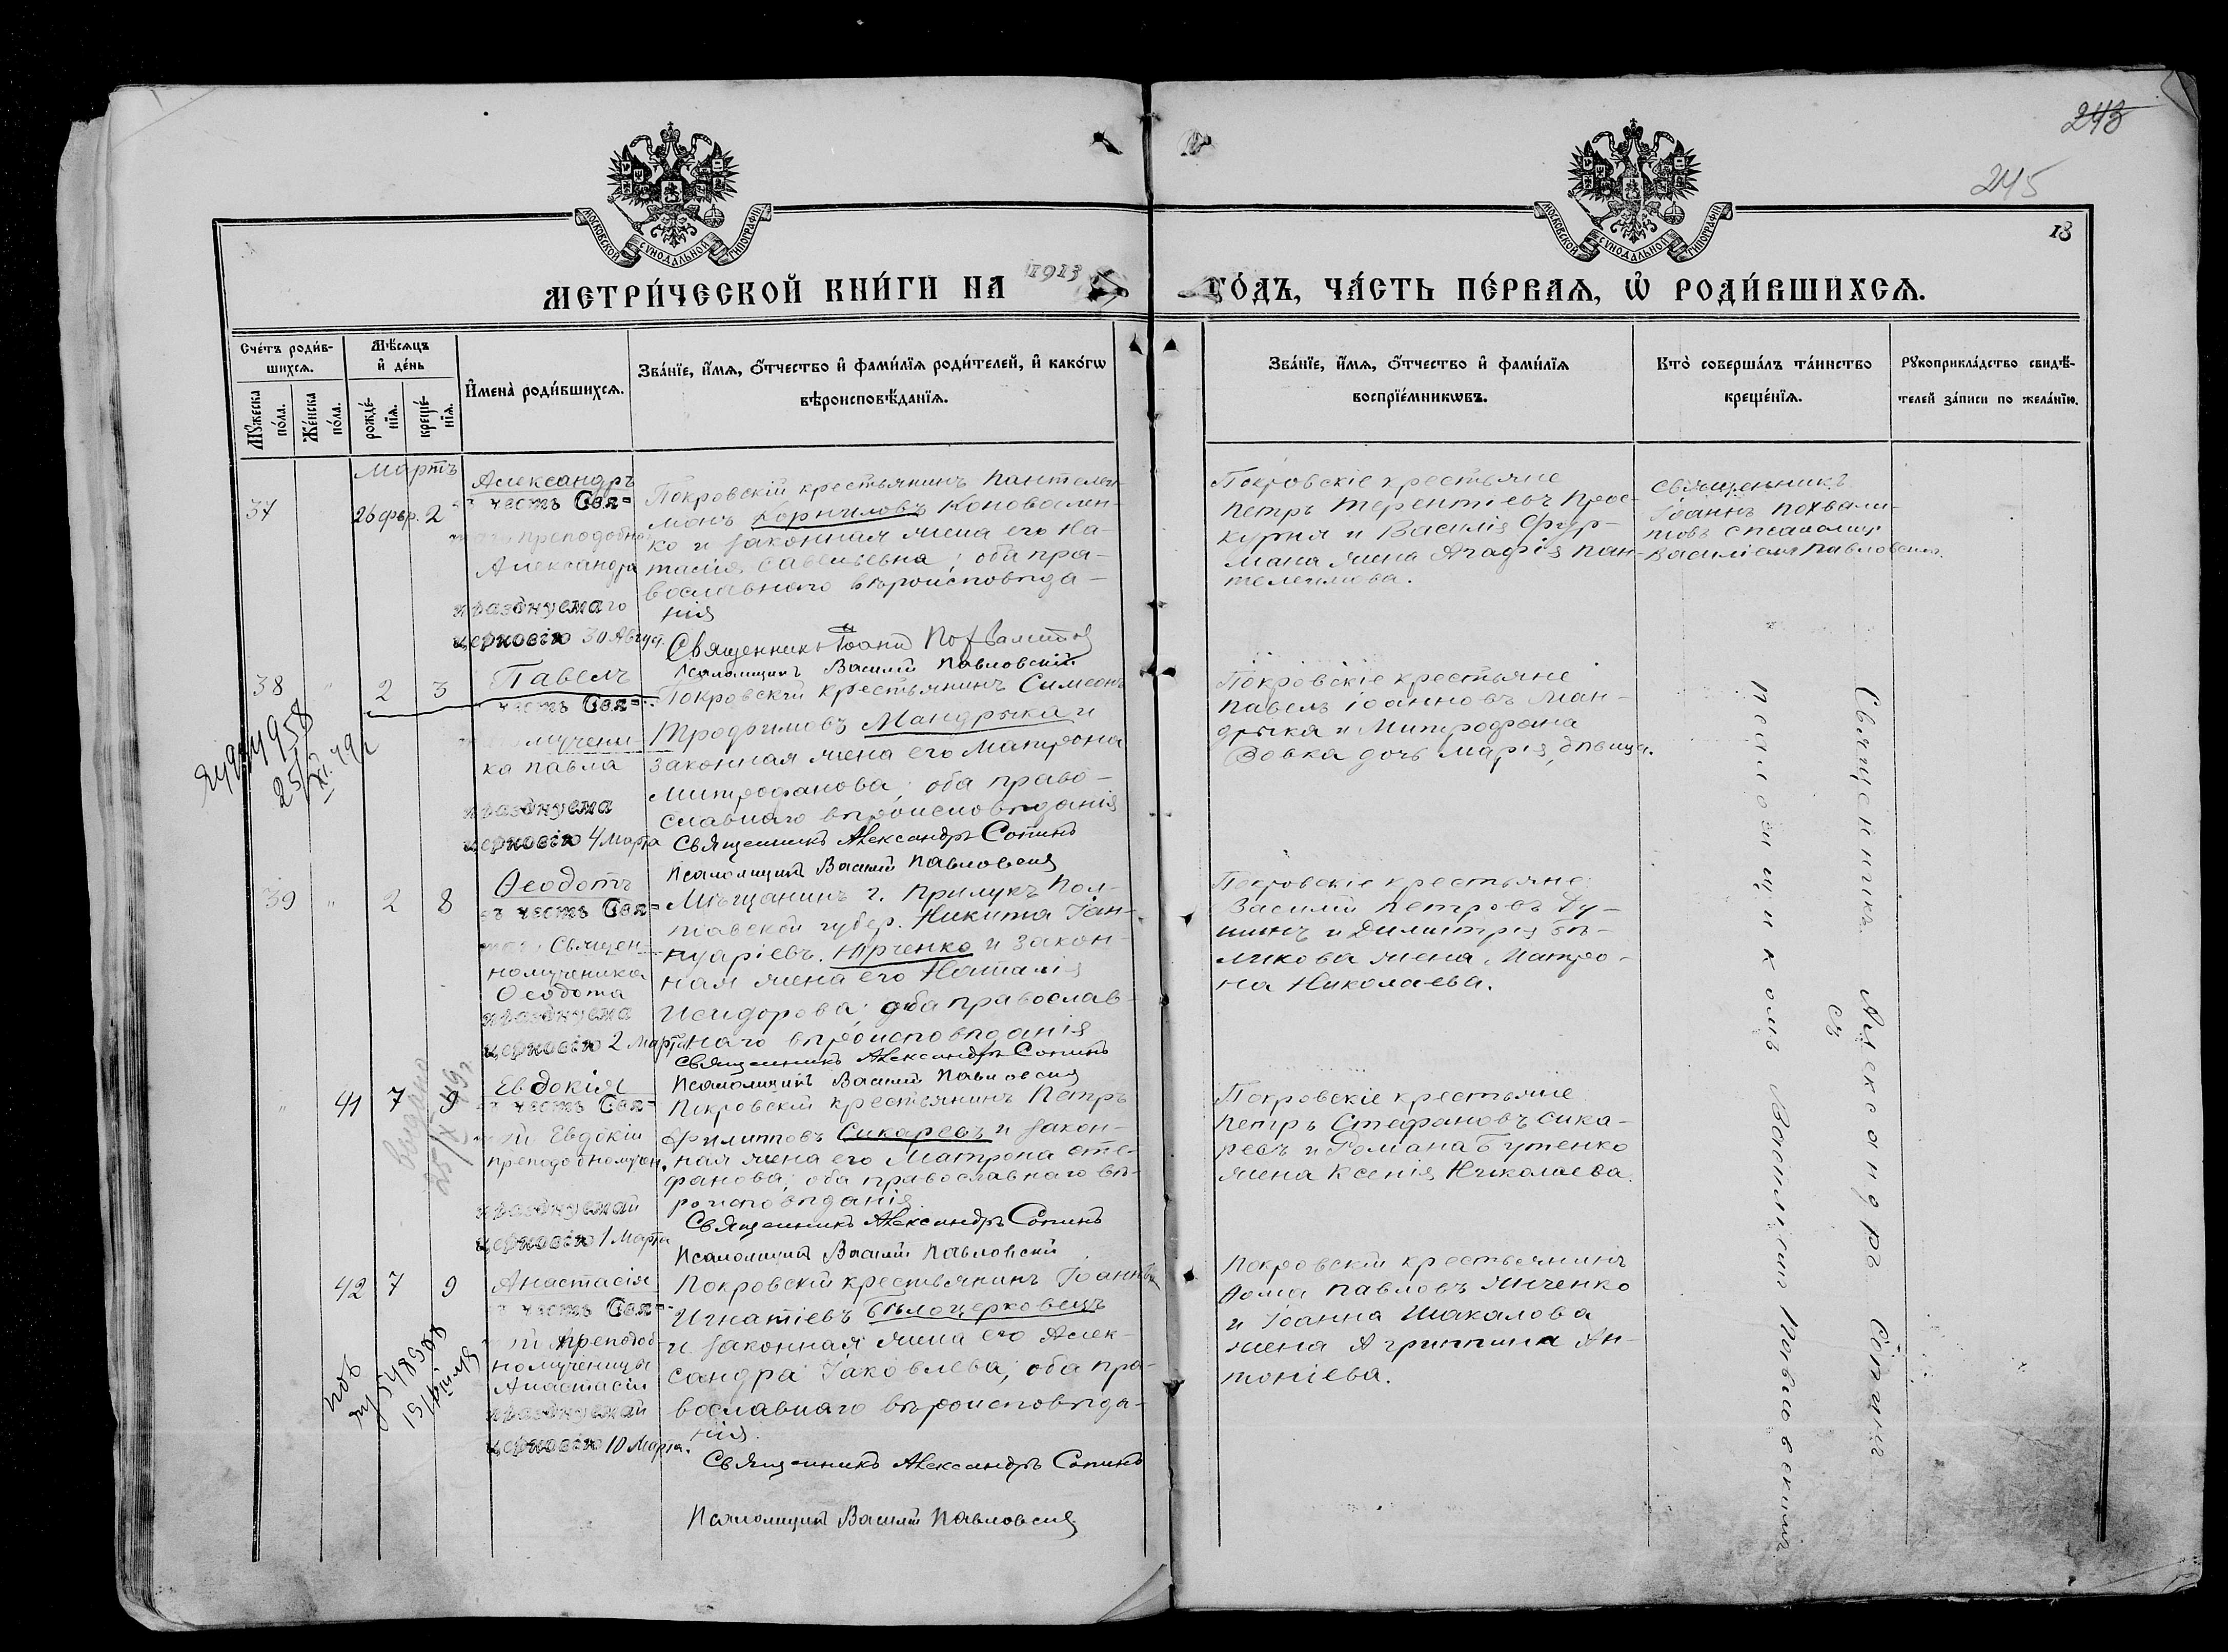 243
245
18
МОСКОВСКОЙ СѴНОДАЛЬНОЙ ТИПОГРАФІИ
МОСКОВСКОЙ СѴНОДАЛЬНОЙ ТИПОГРАФІИ
МЕТРИ́ЧЕСКОЙ КНИ́ГИ НА 1913 ГО́ДЪ, ЧА́СТЬ ПЕ́РВАѦ, Ѡ҆ РОДИ́ВШИХСѦ.
Сче́тъ роди́в-
шихсѧ.
Мѣ́сѧцъ
и҆ де́нь
Мꙋ́жеска по́ла.
Же́нска по́ла.
рожде́-
нїѧ.
креще́-
нїѧ.
И҆мена̀ роди́вшихсѧ.
Зва́нїе, и҆́мѧ, ѻ҆́тчество и҆ фами́лїѧ роди́телей, и҆ како́гѡ
вѣроисповѣ́данїѧ.
Зва́нїе, и҆́мѧ, ѻ҆́тчество и҆ фами́лїѧ
воспрїе́мникѡвъ.
Кто̀ соверша́лъ та́инство
креще́нїѧ.
Рꙋкоприкла́дство свидѣ́-
телей за́писи по жела́нїю.
Мартъ
37
26 фвр. 2
Александръ
въ честь Свя-
таго преподобнаго
Александра
празднуемаго
церковію 30 Август.
Покровскій крестьянинъ Пантелей-
монъ Корниловъ Коновален-
ко и законная жена его На-
талія Савельевна; оба пра-
вославнаго вѣроисповѣда-
нія
Священникъ Іоаннъ Похвалитовъ
Псаломщикъ Василій Павловскій
Покровскіе крестьяне
Петръ Терентіевъ Прос-
курня и Василія Фур-
мана жена Агафія Пан-
телеимова.
Священникъ
Іоаннъ Похвали-
товъ с псаломщ.
Василіемъ Павловским.
38 " 2 3
Павелъ
честь Свя-
мучени-
ка Павла
празднуема
церковію 4 Марта
Покровскій крестьянинъ Симеонъ
Трофимовъ Мандрыка и
законная жена его Матрона
Митрофанова; оба право-
славнаго вѣроисповѣданія
Священникъ Александръ Сопинъ
Псаломщикъ Василій Павловскій
Покровскіе крестьяне
Павелъ Іоанновъ Ман-
дрыка и Митрофана
Вовка дочь Марія, дѣвица.
39 " 2 8
Ѳеодотъ
въ честь Свя-
таго Священ-
номученика
Ѳеодота
празднуема
церковію 2 Марта
Мѣщанинъ г. Прилукъ Пол-
тавской губер. Никита Іан-
нуаріевъ Юрченко и закон-
ная жена его Наталія
Исидорова; оба православ-
наго вѣроисповѣданія
Священникъ Александръ Сопинъ
Псаломщикъ Василій Павловскій
Покровскіе крестьяне
Василій Петровъ
и Димитрія Бѣ-
ликова жена, Матро-
на Николаева.
" 41 7 9
Евдокія
въ честь Свя-
той Евдокіи
преподобномучен.
празднуемай
церковію 1 Марта
Покровскій крестьянинъ Петръ
Филипповъ Сикаревъ и закон-
ная жена его Матрона Сте-
фанова; оба православнаго вѣ-
роисповѣданія
Священникъ Александръ Сопинъ
Псаломщикъ Василій Павловскій
Покровскіе крестьяне
Петръ Стефановъ Сика-
ревъ и Романа Бутенко
жена Ксенія Николаева.
42 7 9
Анастасія
въ честь Свя-
той Преподоб-
номученицы
Анастасіи
празднуемай
церковію 10 Марта.
Покровскій крестьянинъ Іоаннъ
Игнатіевъ Бѣлоцерковецъ
и законная жена его Алек-
сандра Іаковлева; оба пра-
вославнаго вѣроисповѣда-
нія.
Священникъ Александръ Сопинъ
Псаломщикъ Василій Павловскій
Покровскій крестьянинъ
Ѳома Павловъ Янченко
и Іоанна Шакалова
жена Агриппина Ан-
тоніева.
Священникъ Александръ Сопинъ
съ
псаломщикомъ Василіемъ Павловскимъ
25/XI
Выдано
25/X 49 г.